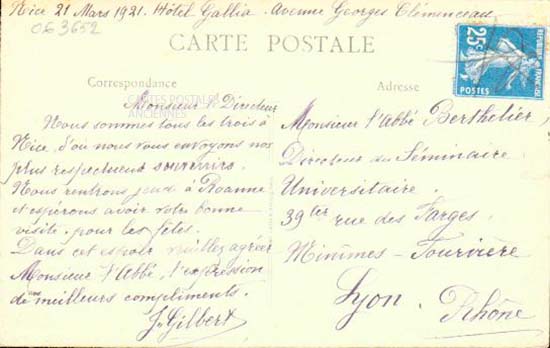 Nice 21 Mars 1921. Hôtel Gallia. Avenue Georges Clémenceau
063652
CARTE POSTALE
Correspondance
Adresse
CARTES POSTALES
ANCIENNES
25c
REPUBLIQUE FRANÇAISE
POSTES
Monsieur le Directeur
Nous sommes tous les trois à
Nice, d'où nous vous envoyons nos
plus respectueux souvenirs.
Nous rentrons jeudi à Roanne
et espérons avoir votre bonne
visite pour les fêtes.
Dans cet espoir veuillez agréer
Monsieur l'Abbé, l'expression
de nos meilleurs compliments.
J. Gilbert
Monsieur l'Abbé Berthelier,
Directeur du Séminaire
Universitaire.
39ter rue des Farges.
Minimes - Fourvière
Lyon.
Rhône